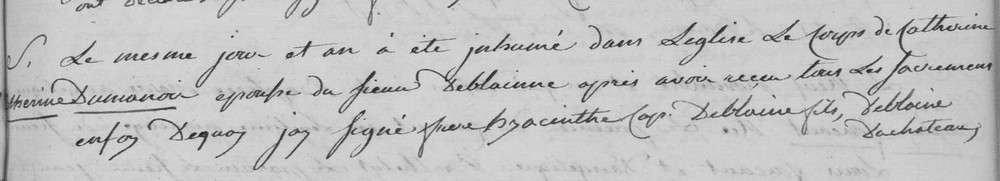 S. Le mesme jour et an à été inhumé dans Leglise Le Corps de Catherine
Dumanoir epouse du sieur Deblainne après avoir reçeu tous Les sacremens
enfoy Dequoy jay signé frere hyacinthe Cap. Deblaine fils, Deblaine
Duchateau